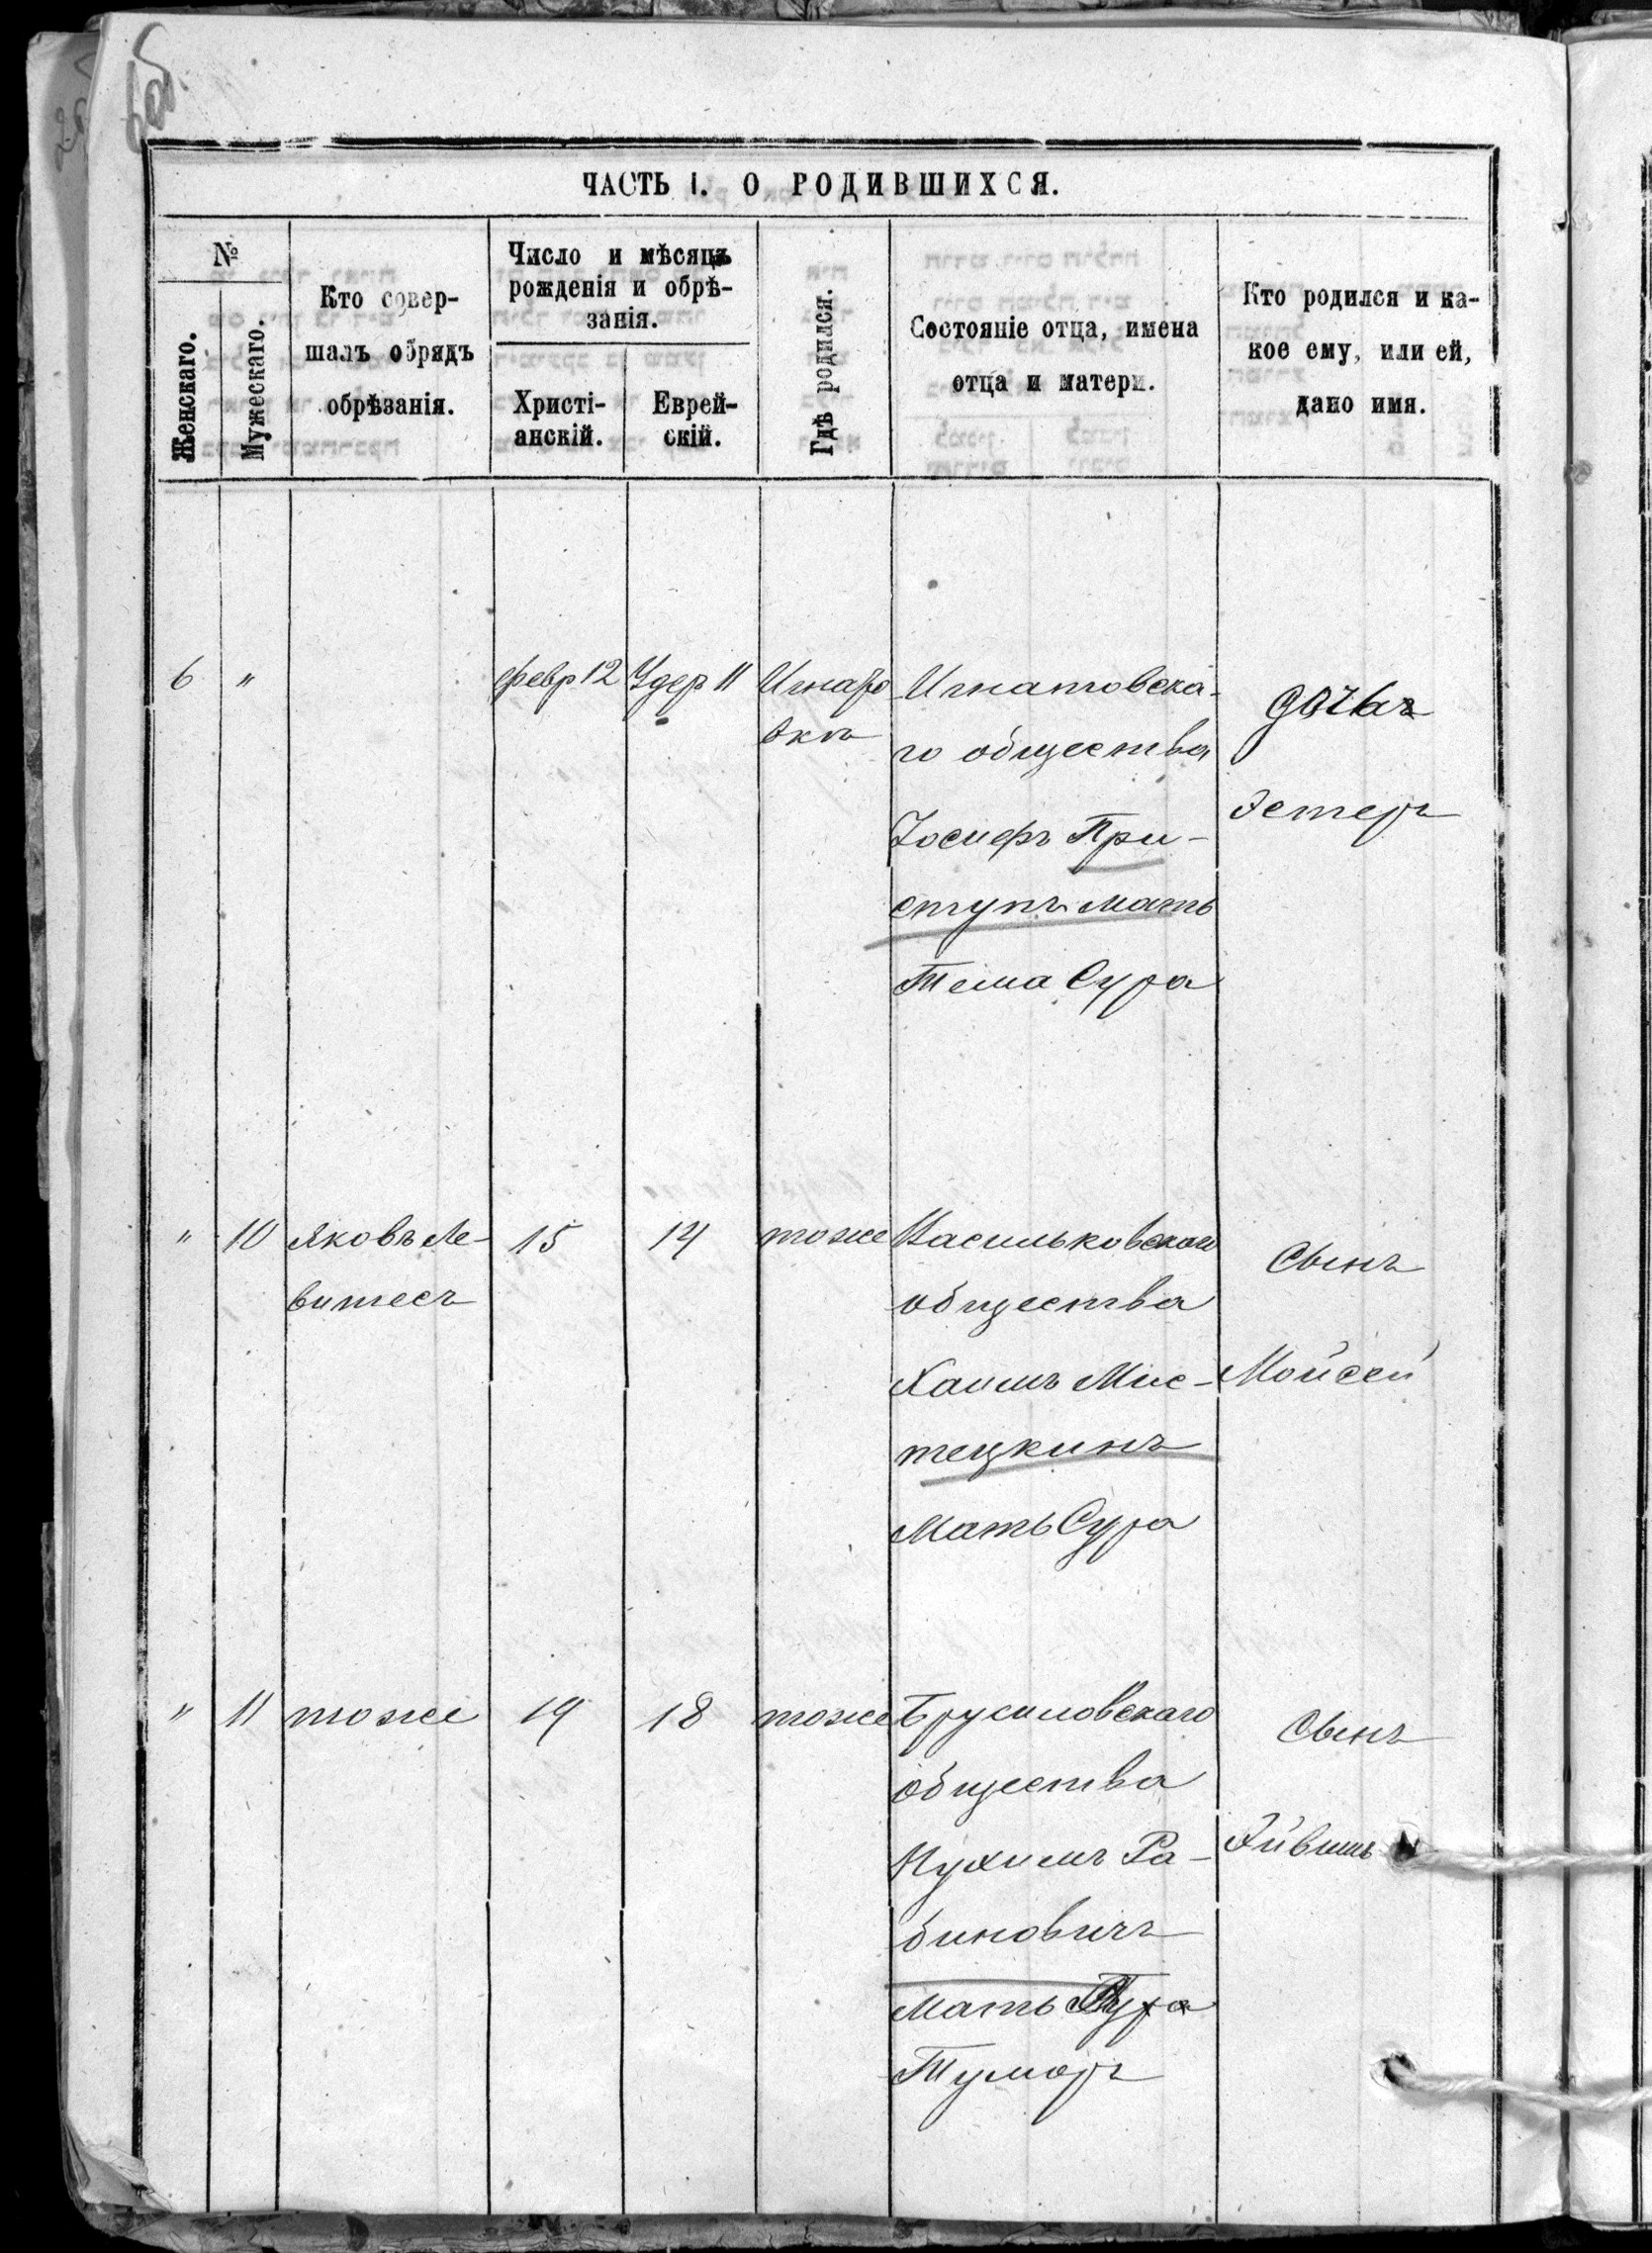 6об.
ЧАСТЬ I. О РОДИВШИХСЯ.
№
Женскаго.
Мужескаго.
Кто совер-
шалъ обрядъ
обрѣзанія.
Число и мѣсяцъ
рожденія и обрѣ-
занія.
Христі-
анскій.
Еврей-
скій.
Гдѣ родился.
Состояніе отца, имена
отца и матери.
Кто родился и ка-
кое ему, или ей,
дано имя.
6 " февр 12 11 Игнато
вкъ
Игнатовска-
го общества
Іосифъ При-
ступъ мать
Тема Сура
дочь
Эстеръ
" 10 Яковъ Ле-
витесъ
15 14 тоже
Васильковскаго
общества
Хаимъ Мис-
тецкинъ
Мать Сура
Сынъ
Мойсей
" 11 тоже 19 18 тоже
Брусиловскаго
общества
Нухимъ Ра-
биновичъ
Мать
Тумаръ
Сынъ